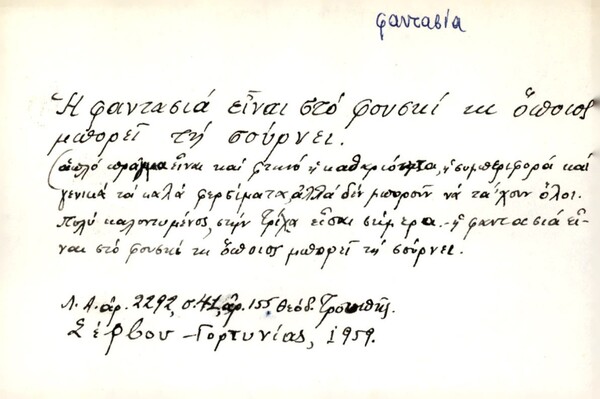 φαντασία
Ἡ φαντασιά εἶναι στό φουσκί κι ὅποιος
μπορεῖ τή σούρνει.
(ἁπλό πρᾶγμα εἶναι καί φτηνό ἡ καθαριότητα, ἡ συμπεριφορά καί
γενικά τά καλά φερσίματα, ἀλλά δέν μποροῦν νά τἄχουν ὅλοι.
Πολύ καλοντυμένος, στήν τρίχα εἶσαι σήμερα - ἡ φαντασιά εἶ-
ναι στό φουσκί κι ὅποιος μπορεῖ τή σούρνει.
Λ. Α. ἀρ. 2292, σ. 41, ἀρ. 155, Θεόδ.
Σέρβου - Γορτυνίας, 1959.